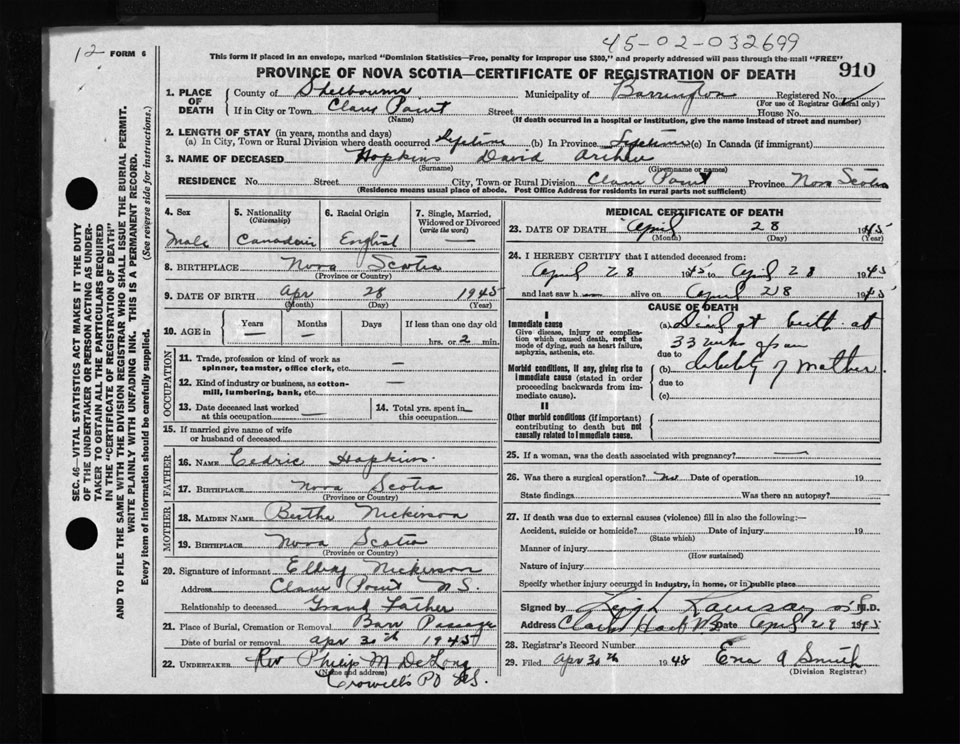 12 FORM 6 45-02-032699
This form if placed in an envelope, marked "Dominion Statistics—Free, penalty for improper use $300," and properly addressed will pass through the mail "FREE"
PROVINCE OF NOVA SCOTIA—CERTIFICATE OF REGISTRATION OF DEATH 910
1. PLACE OF DEATH County of Shelbourne Municipality of Barrington Registered No.
(For use of Registrar General only)
If in City or Town Clam Point Street House No.
(Name) (If death occurred in a hospital or institution, give the name instead of street and number)
2. LENGTH OF STAY (in years, months and days)
(a) In City, Town or Rural Division where death occurred Lifetime (b) In Province Lifetime (c) In Canada (if immigrant)
3. NAME OF DECEASED Hopkins David
(Surname) (Given name or names)
RESIDENCE No. Street City, Town or Rural Division Clam Point Province Nova Scotia
(Residence means usual place of abode. Post Office Address for residents in rural parts not sufficient)
SEC. 46—VITAL STATISTICS ACT MAKES IT THE DUTY
OF THE UNDERTAKER OR PERSON ACTING AS UNDER-
TAKER TO OBTAIN ALL THE PARTICULARS REQUIRED
IN THE "CERTIFICATE OF REGISTRATION OF DEATH"
AND TO FILE THE SAME WITH THE DIVISION REGISTRAR WHO SHALL ISSUE THE BURIAL PERMIT.
WRITE PLAINLY WITH UNFADING INK. THIS IS A PERMANENT RECORD.
Every item of information should be carefully supplied. (See reverse side for instructions.)
4. Sex Male
5. Nationality (Citizenship) Canadain
6. Racial Origin English
7. Single, Married, Widowed or Divorced (write the word) —
8. BIRTHPLACE Nova Scotia
(Province or Country)
9. DATE OF BIRTH Apr 28 1945
(Month) (Day) (Year)
10. AGE in Years Months Days If less than one day old
— — hrs. or 2 min.
OCCUPATION
11. Trade, profession or kind of work as
spinner, teamster, office clerk, etc. —
12. Kind of industry or business, as cotton-
mill, lumbering, bank, etc. —
13. Date deceased last worked
at this occupation —
14. Total yrs. spent in
this occupation —
15. If married give name of wife
or husband of deceased
FATHER
16. NAME Cedric Hopkins.
17. BIRTHPLACE Nova Scotia
(Province or Country)
MOTHER
18. MAIDEN NAME Bertha Nickerson
19. BIRTHPLACE Nova Scotia
(Province or Country)
20. Signature of informant Nickerson
Address Clam Point N.S.
Relationship to deceased Grand Father
21. Place of Burial, Cremation or Removal Barr Passage
Date of burial or removal Apr 30th 1945
22. UNDERTAKER Rev Philip M DeLong
(Name and address)
Crowell's PO NS.
MEDICAL CERTIFICATE OF DEATH
23. DATE OF DEATH April 28 1945
(Month) (Day) (Year)
24. I HEREBY CERTIFY that I attended deceased from:
April 28 1945 to April 28 1945
and last saw h alive on April 28 1945
CAUSE OF DEATH
I
Immediate cause
Give disease, injury or complica-
tion which caused death, not the
mode of dying, such as heart failure,
asphyxia, asthenia, etc.
(a) Died at birth at
33 weeks
due to
Morbid conditions, if any, giving rise to
immediate cause (stated in order
proceeding backwards from im-
mediate cause).
(b) debility of mother.
due to
(c)
II
Other morbid conditions (if important)
contributing to death but not
causally related to immediate cause.
25. If a woman, was the death associated with pregnancy? —
26. Was there a surgical operation? no Date of operation 19
State findings Was there an autopsy?
27. If death was due to external causes (violence) fill in also the following:—
Accident, suicide or homicide? Date of injury 19
(State which)
Manner of injury
(How sustained)
Nature of injury
Specify whether injury occurred in industry, in home, or in public place
Signed by Leigh Ramsay M.D.
Address Date April 29 1945
28. Registrar's Record Number
29. Filed Apr 30th 1945 Ena A Smith
(Division Registrar)